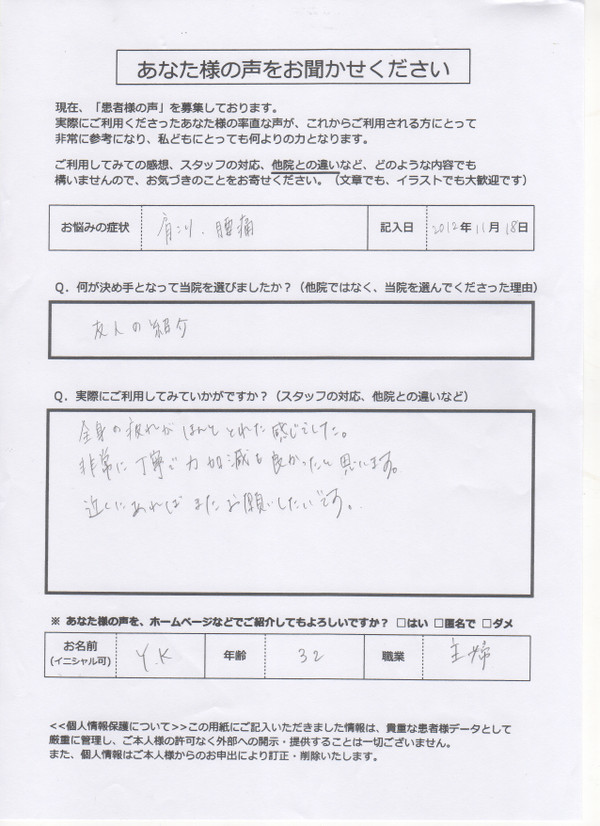 あなた様の声をお聞かせください
現在、「患者様の声」を募集しております。
実際にご利用くださったあなた様の率直な声が、これからご利用される方にとって
非常に参考になり、私どもにとっても何よりの力となります。
ご利用してみての感想、スタッフの対応、他院との違いなど、どのような内容でも
構いませんので、お気づきのことをお寄せください。（文章でも、イラストでも大歓迎です）
お悩みの症状 肩こり、腰痛 記入日 2012年11月18日
Q．何が決め手となって当院を選びましたか？（他院ではなく、当院を選んでくださった理由）
友人の紹介
Q．実際にご利用してみていかがですか？（スタッフの対応、他院との違いなど）
全身の疲れがほんととれた感じでした。
非常に丁寧で力加減も良かったと思います。
近くにあればまたお願いしたいです。
※ あなた様の声を、ホームページなどでご紹介してもよろしいですか？ □はい □匿名で □ダメ
お名前 Y.K 年齢 32 職業 主婦
(イニシャル可)
<<個人情報保護について>>この用紙にご記入いただきました情報は、貴重な患者様データとして
厳重に管理し、ご本人様の許可なく外部への開示・提供することは一切ございません。
また、個人情報はご本人様からのお申出により訂正・削除いたします。